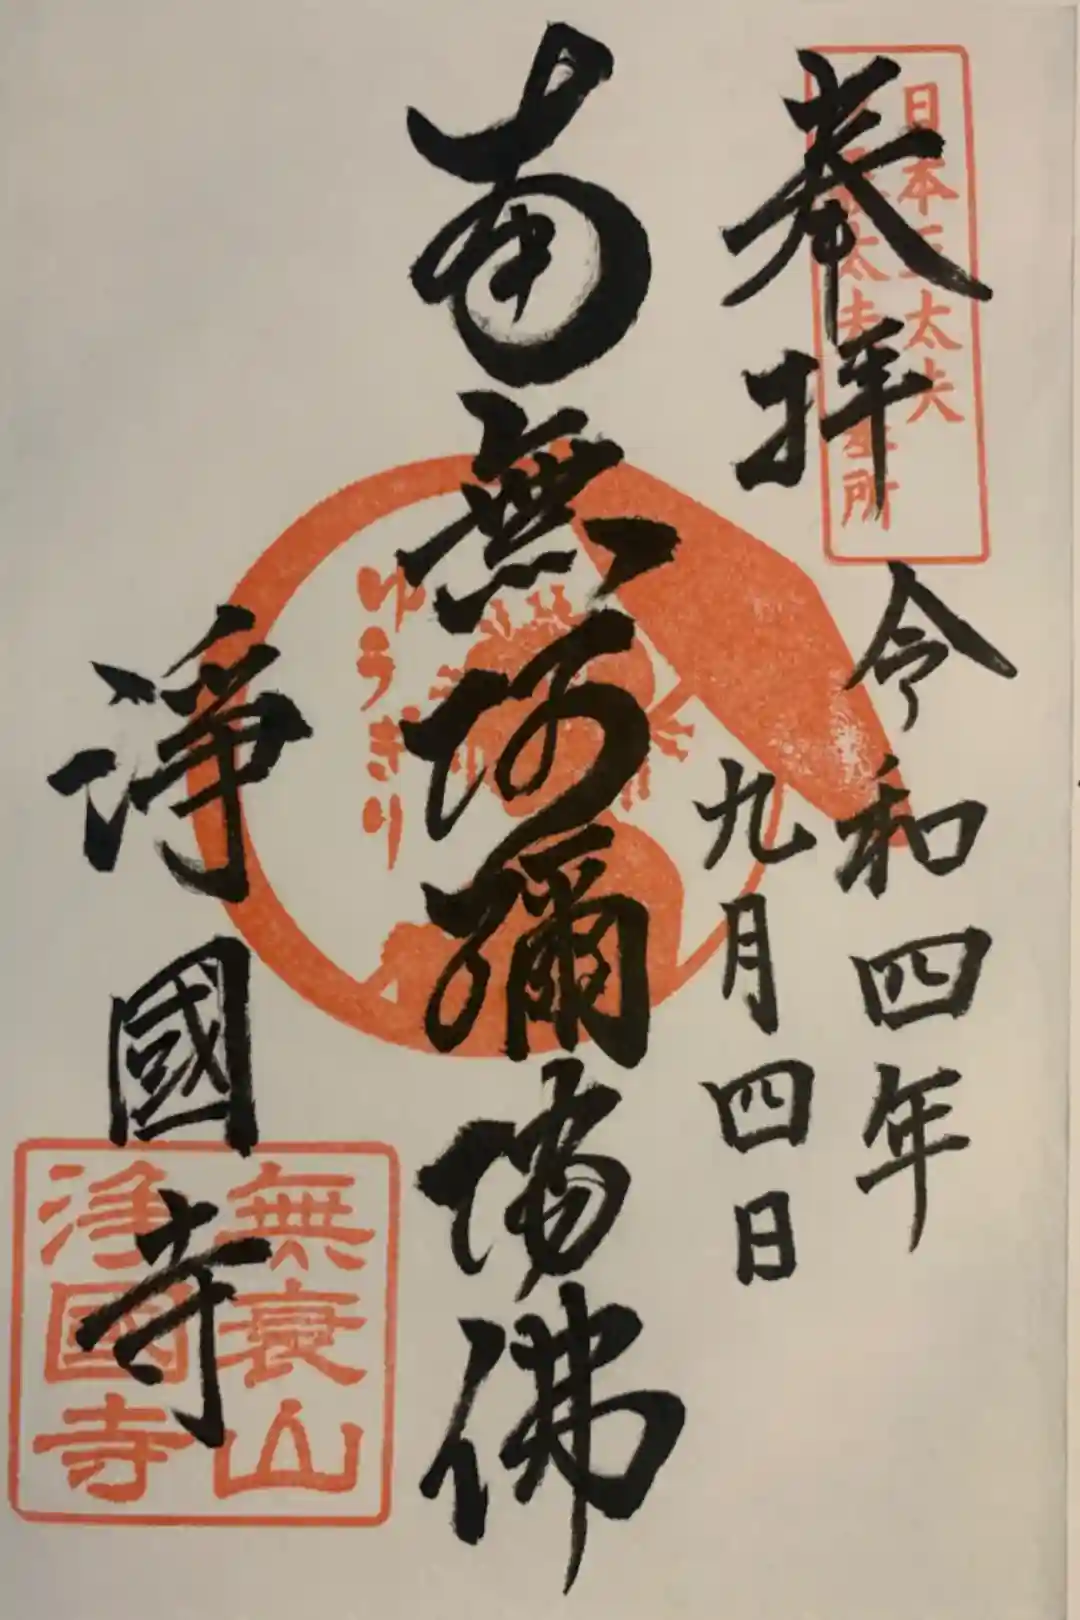 日本三太夫
夕霧太夫墓所
奉拝
令和四年
九月四日
南無阿彌陀佛
ゆうぎり
淨國寺
無衰山
淨國寺